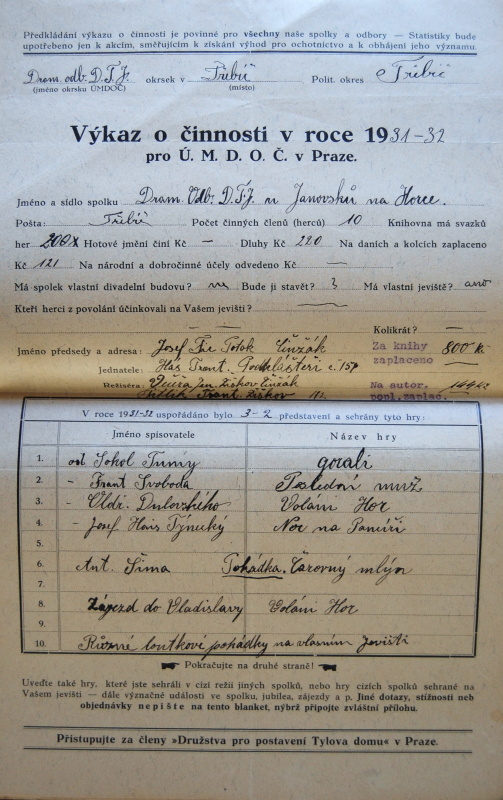 Předkládání výkazu o činnosti je povinné pro všechny naše spolky a odbory — Statistiky bude
upotřebeno jen k akcím, směřujícím k získání výhod pro ochotnictvo a k obhájení jeho významu.
Dram. odb. D.T.J. okrsek v Třebíč Polit. okres Třebíč
(jméno okrsku ÚMDOČ) (místo)
Výkaz o činnosti v roce 1931-32
pro Ú. M. D. O. Č. v Praze.
Jméno a sídlo spolku Dram. Odb. D.T.J. u Janovských na Horce.
Pošta: Třebíč Počet činných členů (herců) 10 Knihovna má svazků
her 200 Hotové jmění činí Kč — Dluhy Kč 220 Na daních a kolcích zaplaceno
Kč 121 Na národní a dobročinné účely odvedeno Kč —
Má spolek vlastní divadelní budovu? ne Bude ji stavět? Má vlastní jeviště? ano
Kteří herci z povolání účinkovali na Vašem jevišti? —
Kolikrát? —
Jméno předsedy a adresa: Josef Potok Činžák
Za knihy zaplaceno 800 Kč
Jednatele: Frant. č. 157
Režiséra: Jan Žižkov Činžák
Frant. Žižkov
Na autor. popl. zaplac.
V roce 1931-32 uspořádáno bylo 3-2 představení a sehrány tyto hry:
Jméno spisovatele Název hry
1. od Sokol Tůmy gorali
2. - Frant Svoboda Poslední muž
3. - Oldř. Volání Hor
4. - Josef Hais Týnecký Noc na
5.
6. Ant. Šíma Pohádka. Čarovný mlýn
7.
8. Zájezd do Vladislavy Volání Hor
9.
10. Různé loutkové pohádky na vlasním Jevišti
Pokračujte na druhé straně!
Uveďte také hry, které jste sehráli v cizí režii jiných spolků, nebo hry cizích spolků sehrané na
Vašem jevišti — dále význačné události ve spolku, jubilea, zájezdy a p. Jiné dotazy, stížnosti neb
objednávky nepište na tento blanket, nýbrž připojte zvláštní přílohu.
Přistupujte za členy »Družstva pro postavení Tylova domu« v Praze.